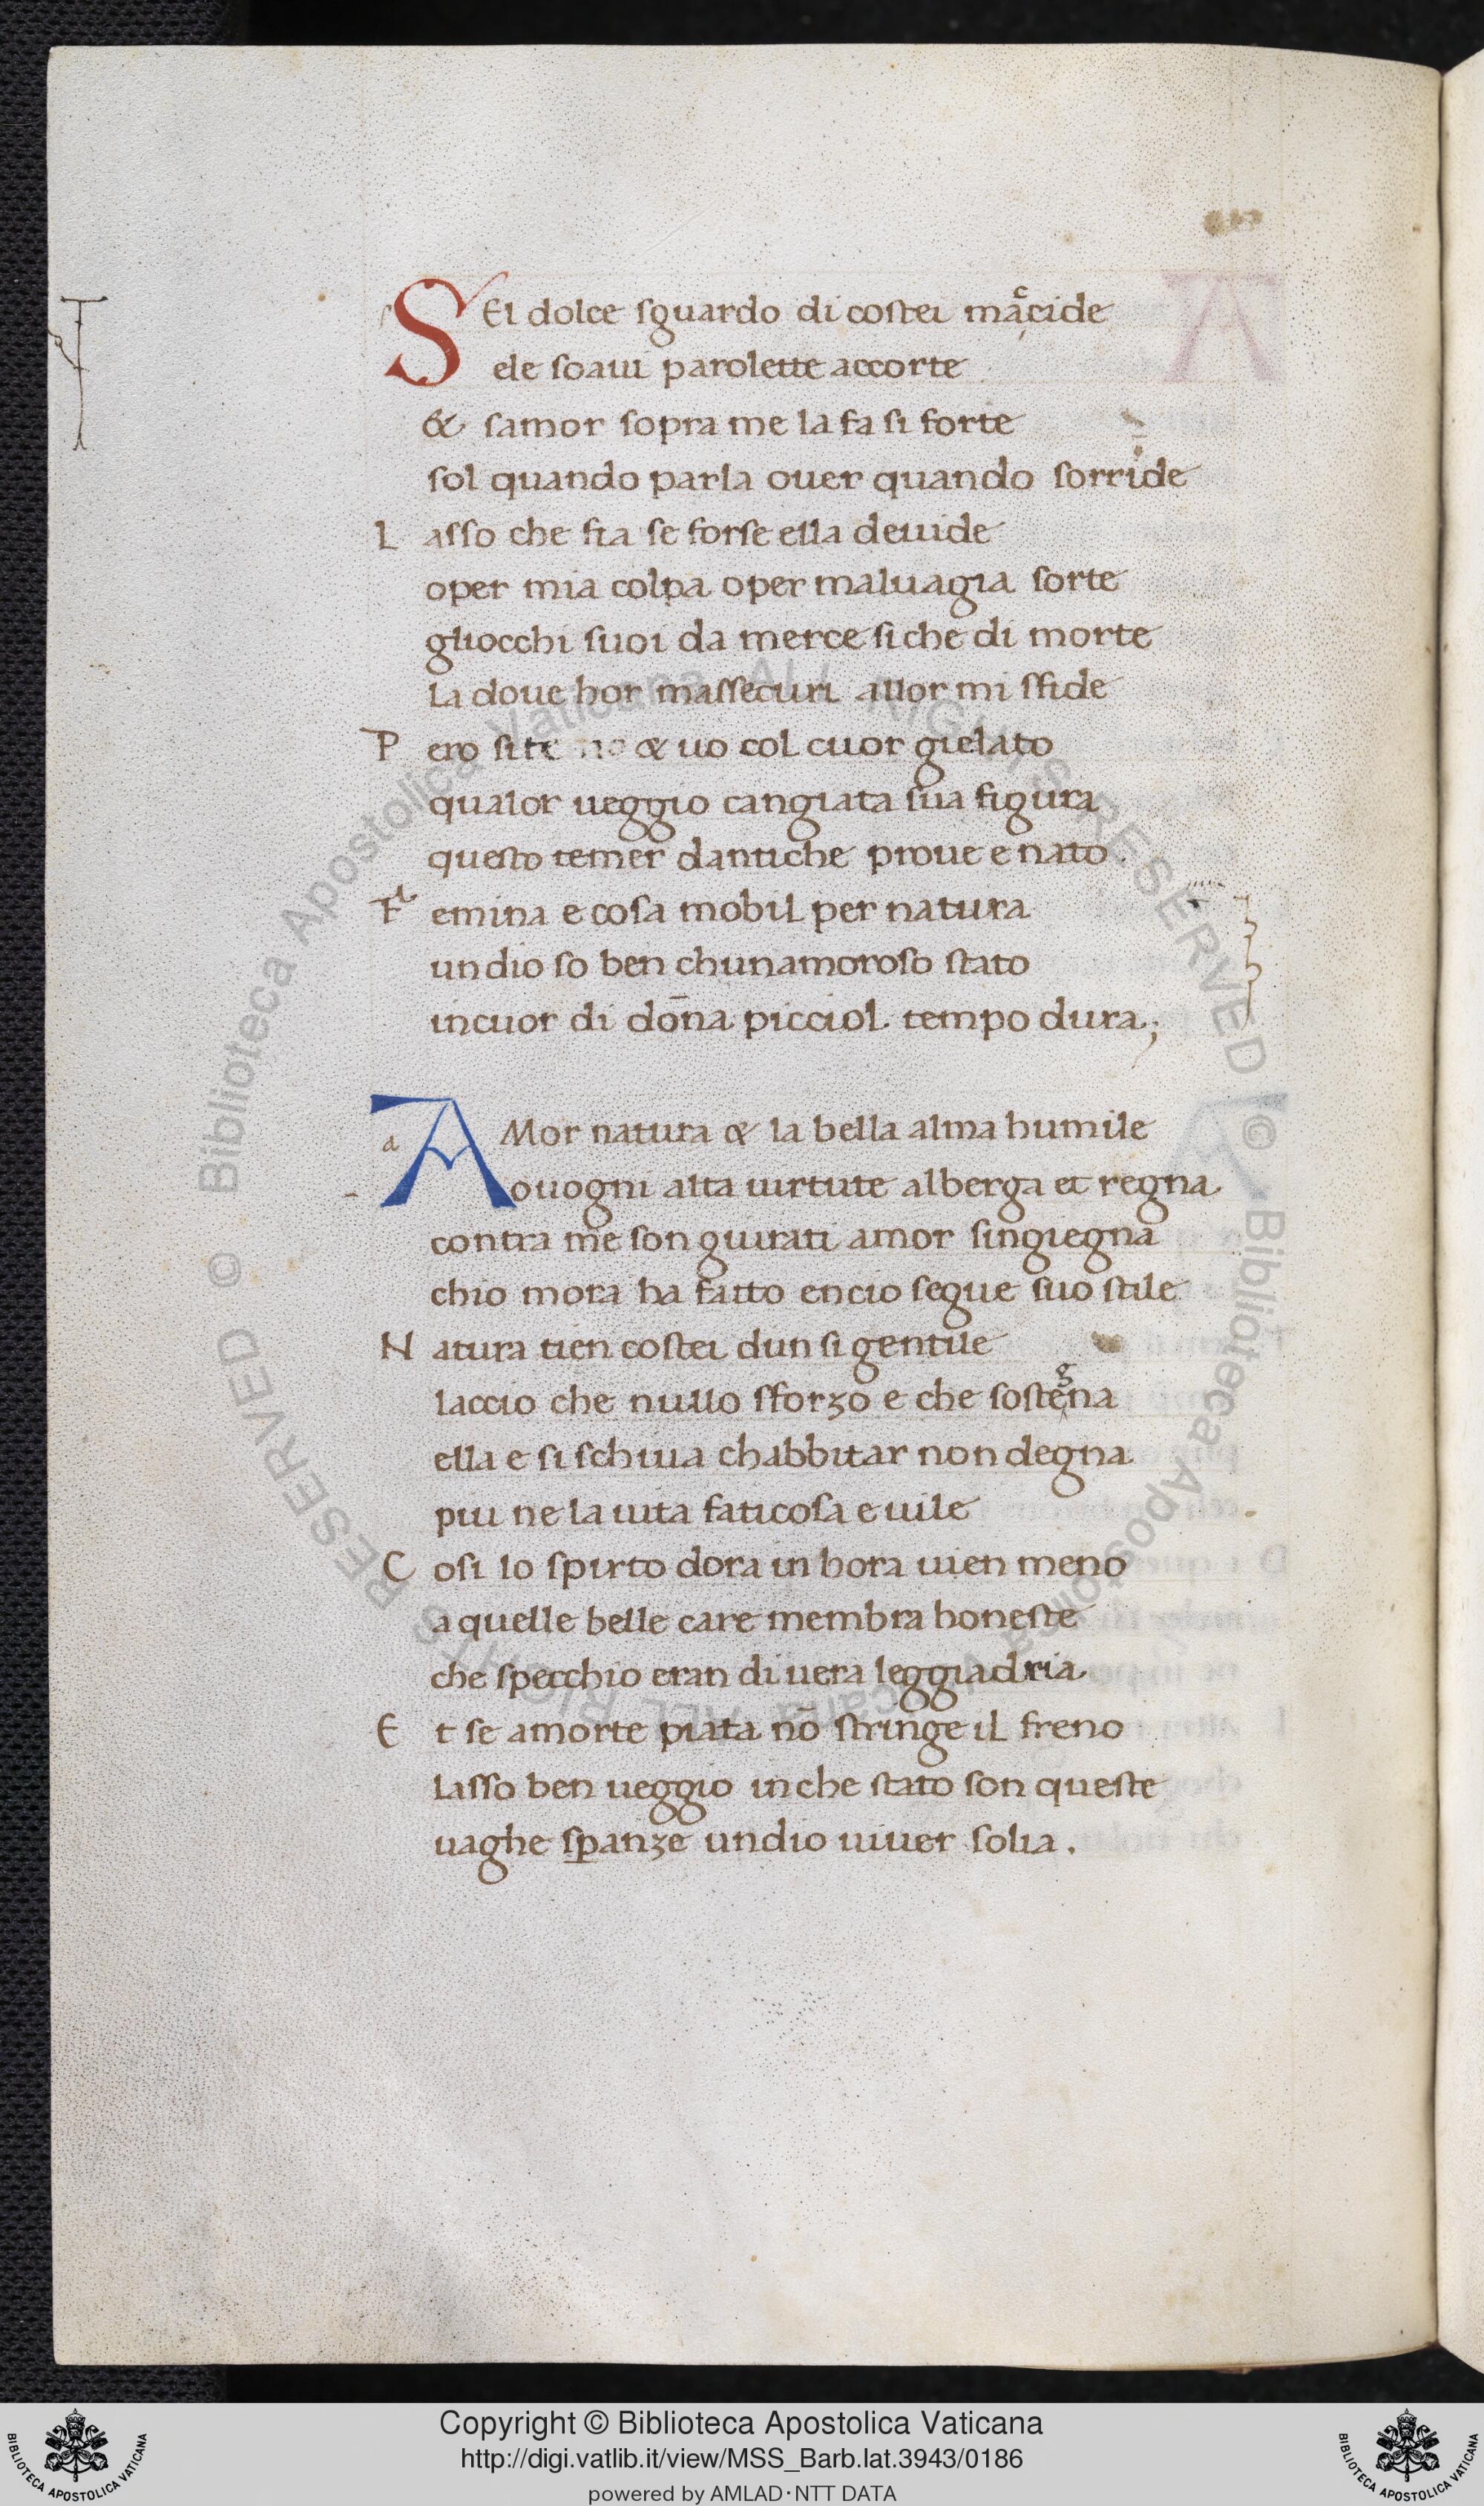 SEl dolce sguardo di costei maccide
ele soaui parolette accorte
& samor sopra me la fa si forte
sol quando parla ouer quando sorride
Lasso che fia se forse ella deuide
oper mia colpa oper maluagia sorte
gliocchi suoi da merce siche di morte
la doue hor massecuri allor mi sfide
Pero si & uo col cuor gielato
qualor ueggio cangiata sua figura
questo temer dantiche proue e nato
Femina e cosa mobil per natura
undio so ben chunamoroso stato
incuor di dōna picciol tempo dura;
a
AMor natura & la bella alma humile
ouogni alta uirtute alberga et regna
contra me son giurati amor singiegna
chio mora ha fatto encio segue suo stile
Natura tien costei dun si gentile
laccio che nullo sforzo e che sostegna
ella e si schiua chabbitar non degna
piu ne la uita faticosa e uile
Cosi lo spirto dora in hora uien meno
a quelle belle care membra honeste
che specchio eran di uera leggiadria
Et se amorte piata nō stringe il freno
lasso ben ueggio inche stato son queste
uaghe spanze undio uiuer solia.
© Biblioteca Apostolica Vaticana ALL RIGHTS RESERVED
© Biblioteca Apostolica Vaticana ALL RIGHTS RESERVED
Copyright © Biblioteca Apostolica Vaticana
http://digi.vatlib.it/view/MSS_Barb.lat.3943/0186
powered by AMLAD·NTT DATA
BIBLIOTECA APOSTOLICA VATICANA
BIBLIOTECA APOSTOLICA VATICANA